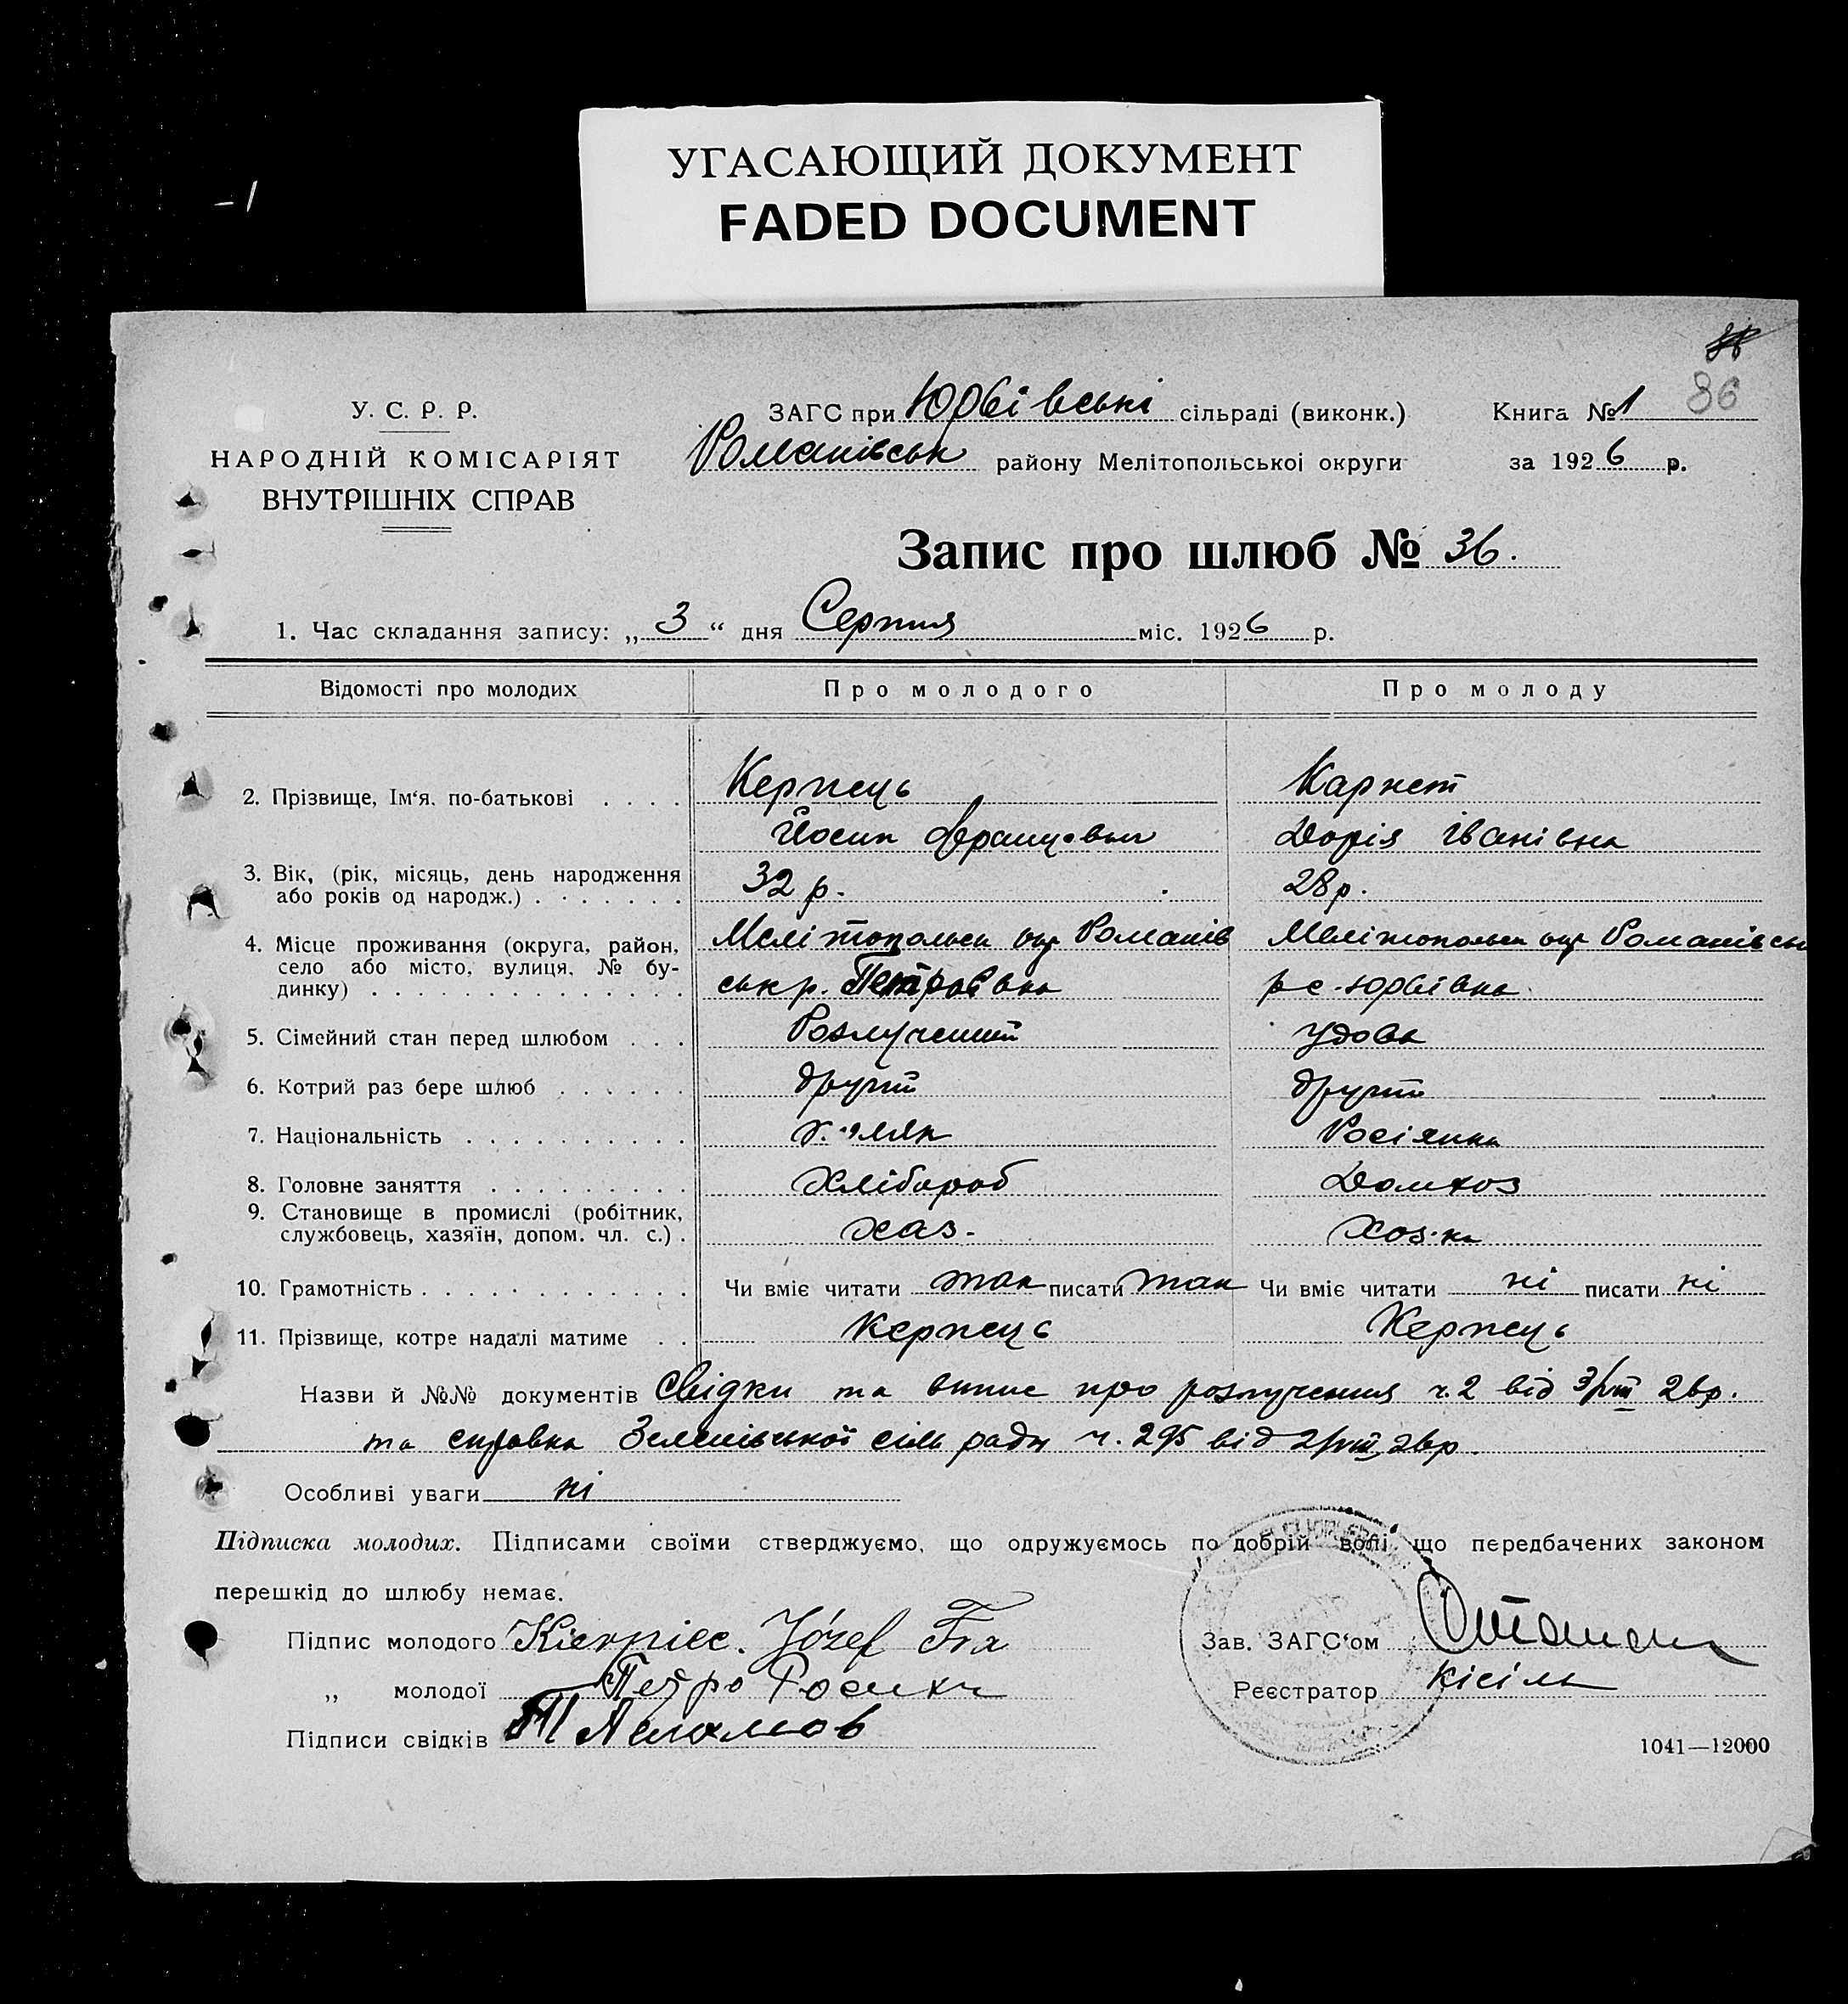 УГАСАЮЩИЙ ДОКУМЕНТ
FADED DOCUMENT
86
У. С. Р. Р.
НАРОДНІЙ КОМІСАРІЯТ
ВНУТРІШНІХ СПРАВ
ЗАГС при Юрбівські сільраді (виконк.) Книга № 1
Романівськ району Мелітопольської округи за 1926 р.
Запис про шлюб № 36.
1. Час складання запису: „ 3 “ дня Серпня міс. 1926 р.
Відомості про молодих Про молодого Про молоду
2. Прізвище, Ім‘я, по-батькові . . . . Керпець Карнет
Йосип Францович Дорія Іванівна
3. Вік, (рік, місяць, день народження
або років од народж.) . . . . . . . 32 р. 28 р.
4. Місце проживання (округа, район, Мелітопольськ окр Романів Мелітопольськ окр Романівськ
село або місто, вулиця, № бу- ськ р. Петровка р с. Юрбівка
динку) . . . . . . . . . . . . . . .
5. Сімейний стан перед шлюбом . . . Розлучений удова
6. Котрий раз бере шлюб . . . . . . другий другий
7. Національність . . . . . . . . . . Росіянка
8. Головне заняття . . . . . . . . . Хлібороб Домхоз
9. Становище в промислі (робітник,
службовець, хазяїн, допом. чл. с.) . хаз. хоз-ка
10. Грамотність . . . . . . . . . . . . Чи вміє читати так писати так Чи вміє читати ні писати ні
11. Прізвище, котре надалі матиме . . Керпець Керпець
Назви й №№ документів Свідки та випис про розлучення ч. 2 від 3/VIII 26р.
та справка Зеленівської сіль ради ч. 295 від 2/VIII 26р.
Особливі уваги ні
Підписка молодих. Підписами своїми стверджуємо, що одружуємось по добрій волі що передбачених законом
перешкід до шлюбу немає.
Підпис молодого Kierpiec. Józef Fra Зав. ЗАГС‘ом
„ молодої Петро Реєстратор Кісіль
Підписи свідків
1041—12000